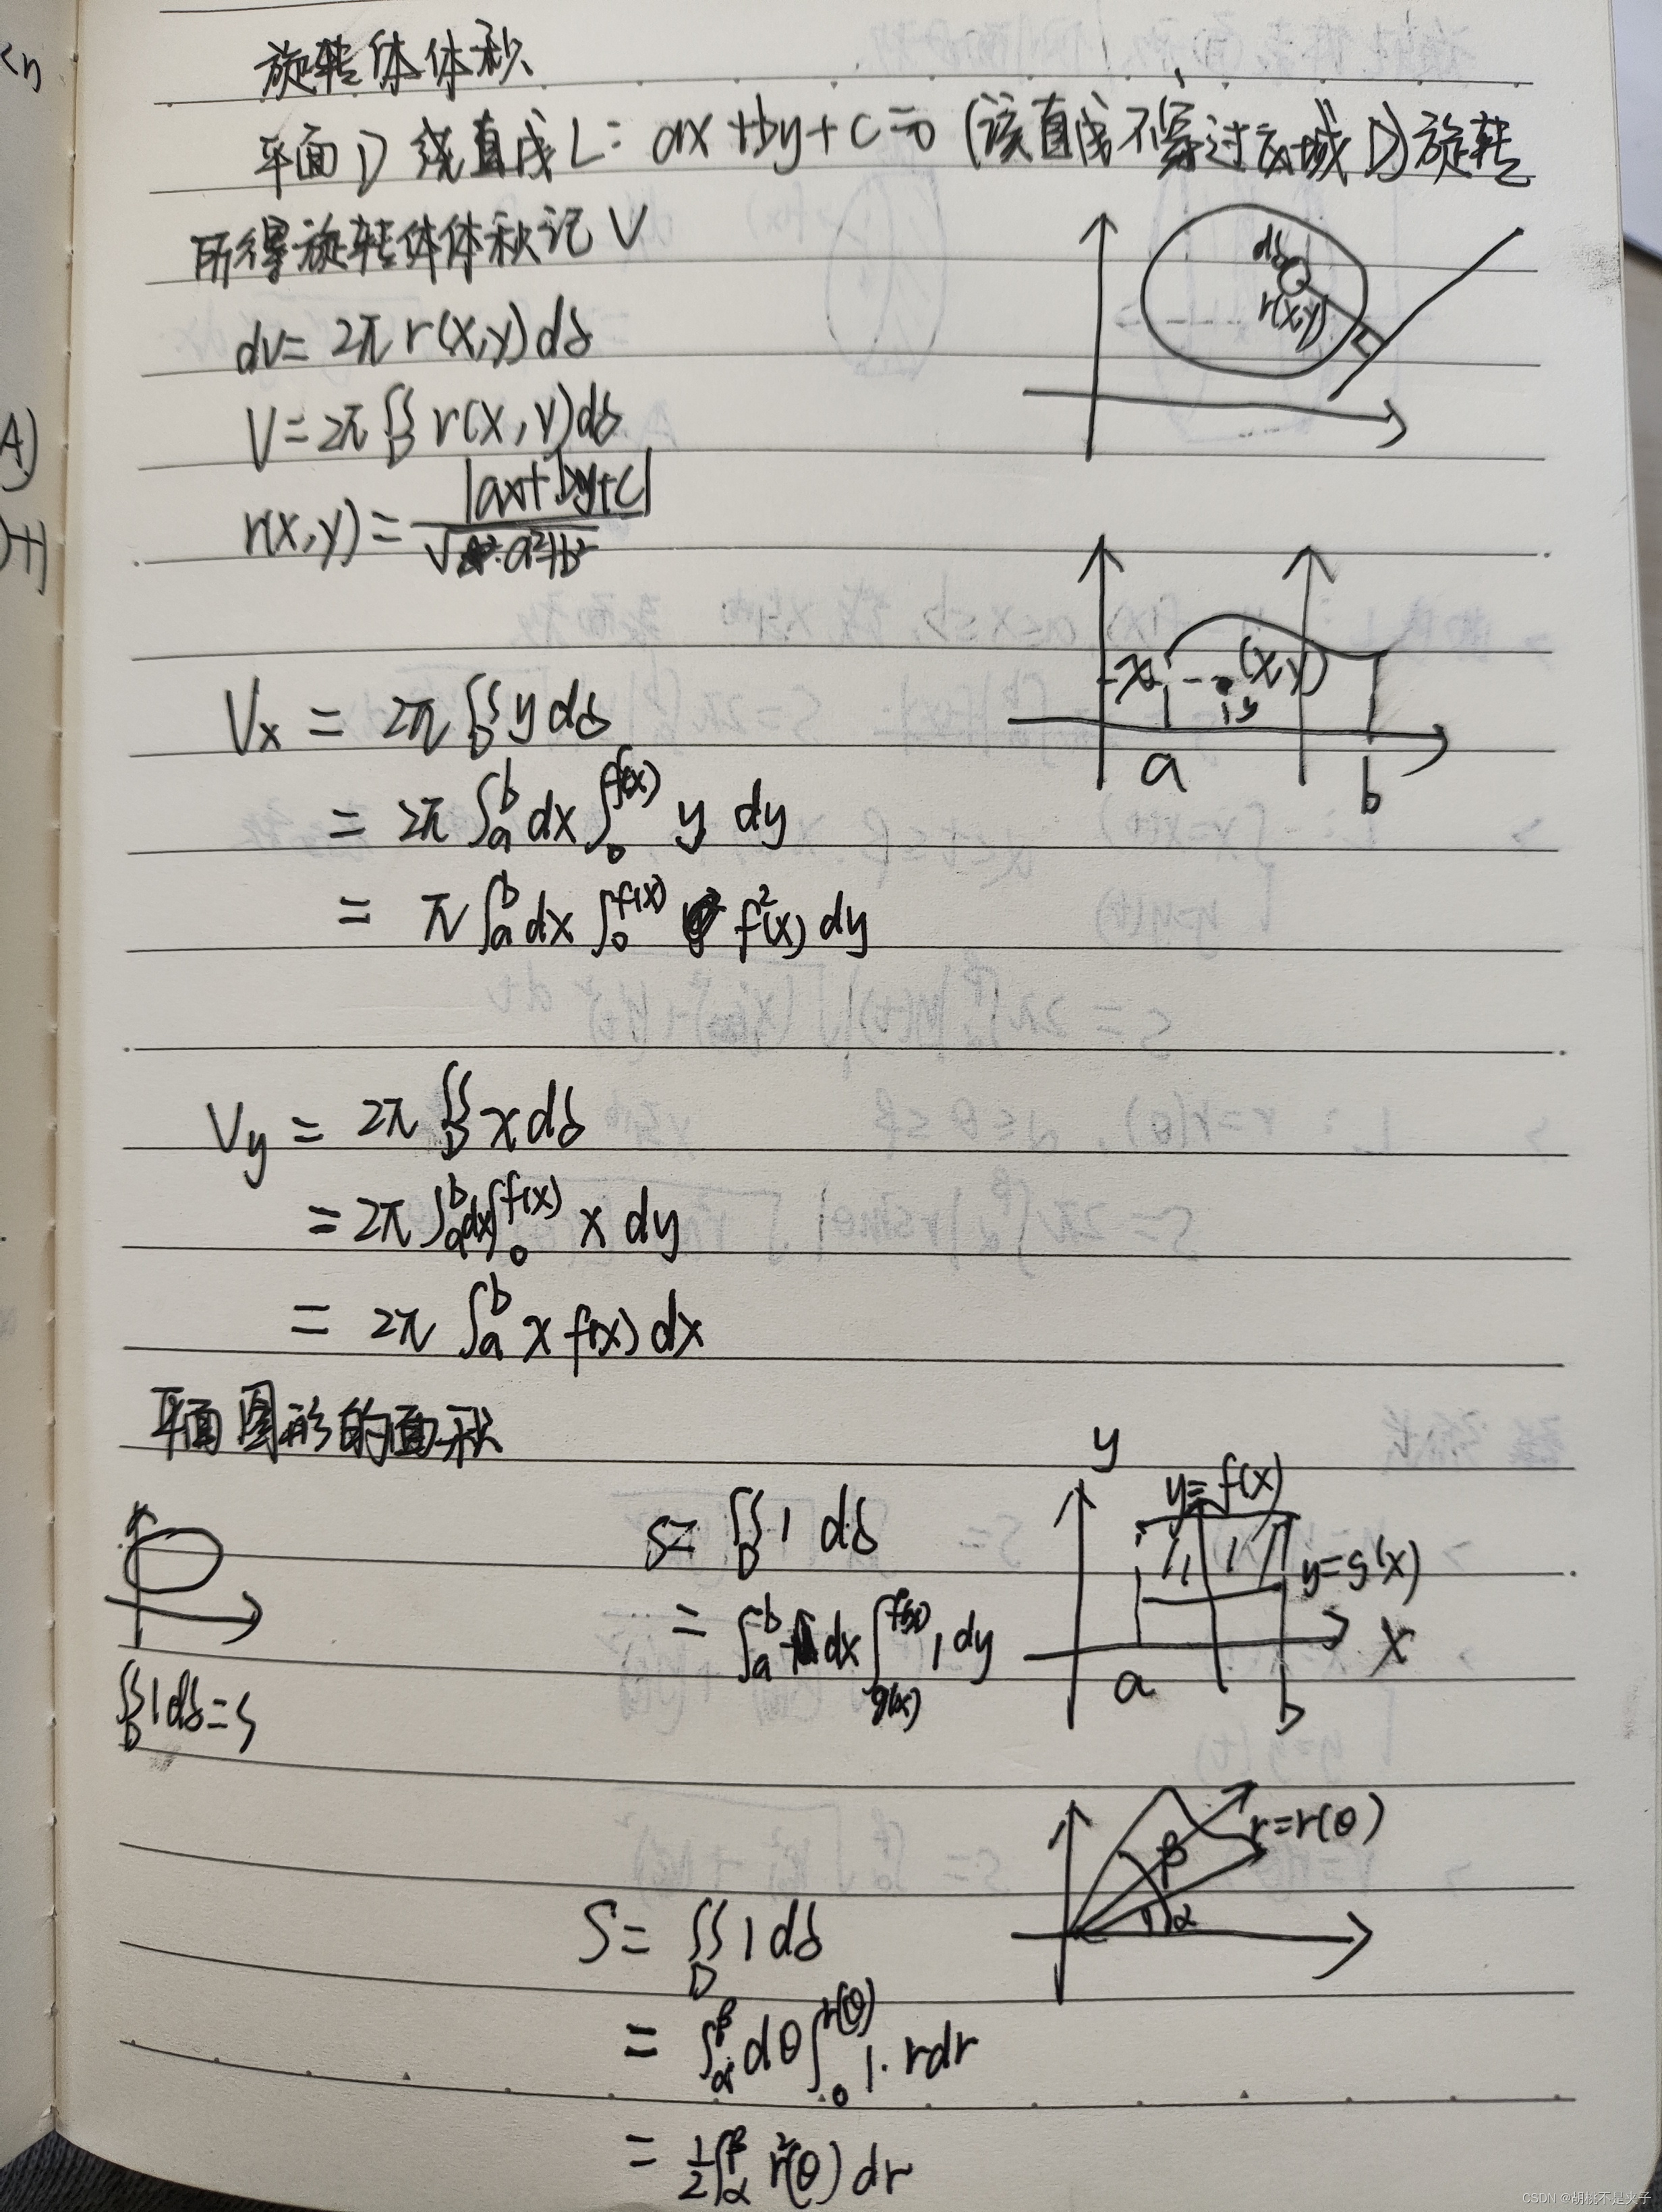 旋转体体积
平面D绕直线L: ax+by+c=0 (该直线不穿过区域D)旋转
所得旋转体体积记V
dv=2π r(x,y)dδ
V=2π∬_D r(x,y)dδ
r(x,y)=|ax+by+c|/√(a²+b²)
dδ
r(x,y)
Vx = 2π∬_D y dδ
= 2π∫_a^b dx∫_0^f(x) y dy
= π∫_a^b dx∫_0^f(x) f²(x) dy
x (x,y)
y
a b
Vy = 2π∬_D x dδ
= 2π∫_a^b dx∫_0^f(x) x dy
= 2π∫_a^b x f(x) dx
平面图形的面积
∬_D 1dδ=S
S= ∬_D 1 dδ
= ∫_a^b dx∫_g(x)^f(x) 1 dy
y
y=f(x)
y=g(x)
x
a b
S= ∬_D 1dδ
= ∫_α^β dθ∫_0^r(θ) 1·rdr
= 1/2∫_α^β r²(θ)dr
r=r(θ)
β
α
<n
A)
)+1
CSDN @胡桃不是夹子